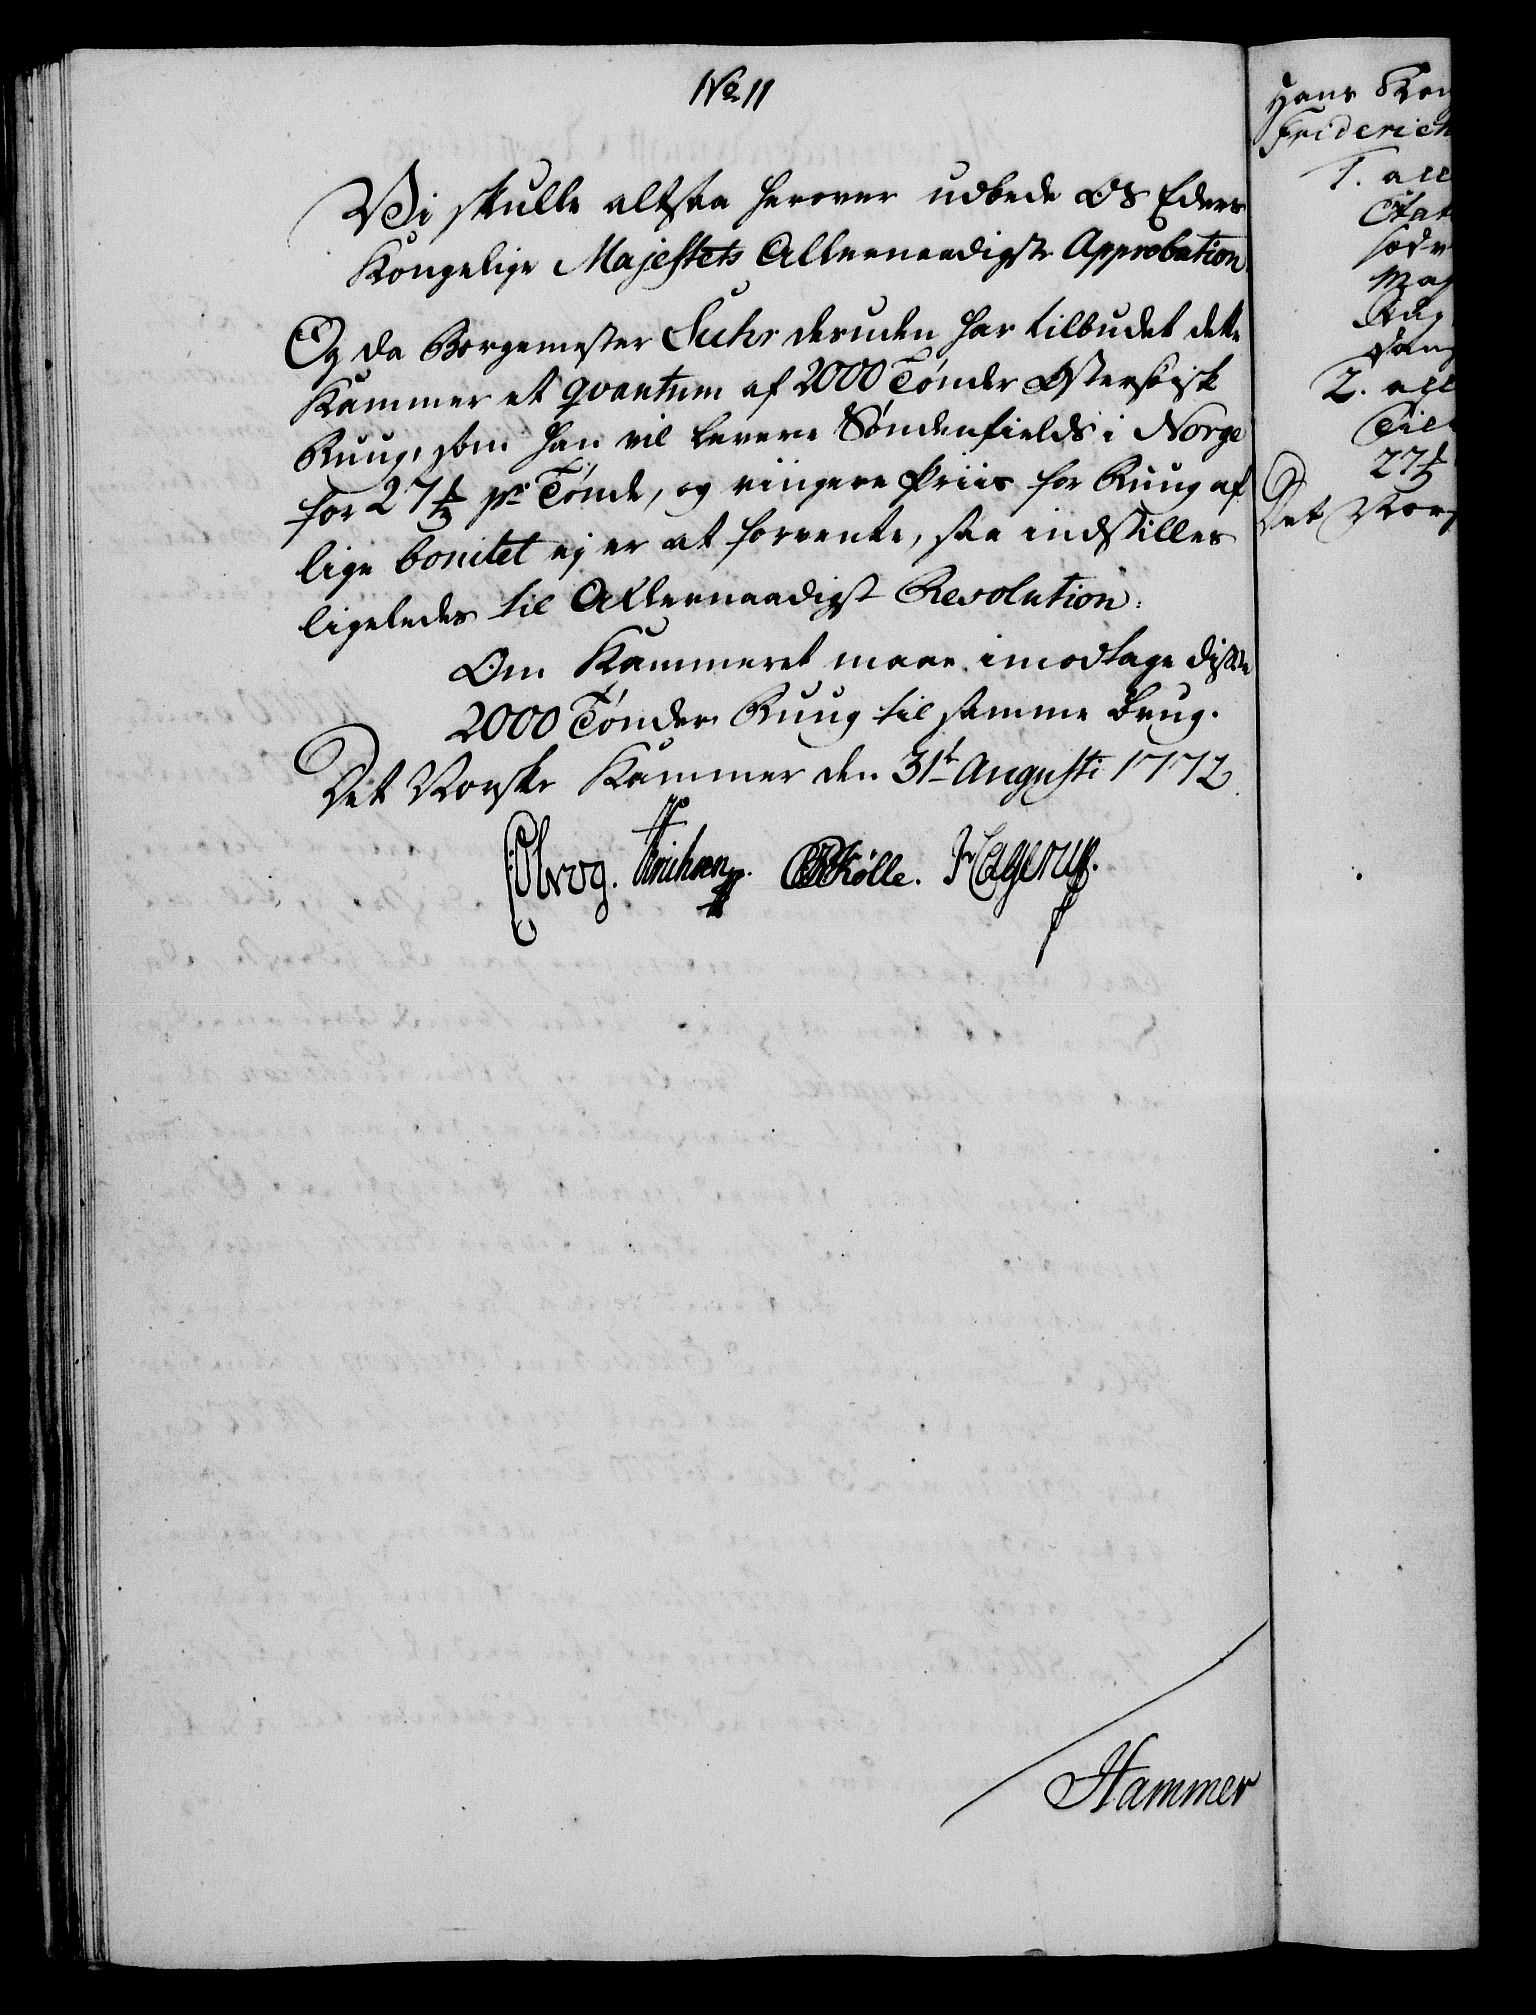 No 11
Vi skulle altsaa herover udbede Os Eders
Kongelige Majestets Allernaadigste Approbation.
Og da Borgemester Suhr desuden har tilbudet dette
Kammer et qvantum af 2000 Tønder Østersøisk
Ruug, som han vil levere Søndenfields i Norge
for 27 ₰ pr Tønde, og ringere Priis for Ruug af
lige bonitet ej er at forvente, saa indstilles
ligeledes til Allernaadigst Resolution:
Om Kammeret maae imodtage disse
2000 Tønder Ruug til samme Brug.
Det Norske Kammer den 31t Augusti 1772
Holrog. Erichsen. Kølle. Hagerup.
Hammer
Hans Kon
Friderich
1. all
Øst
Rug
2. all
Til
27
Det Nors